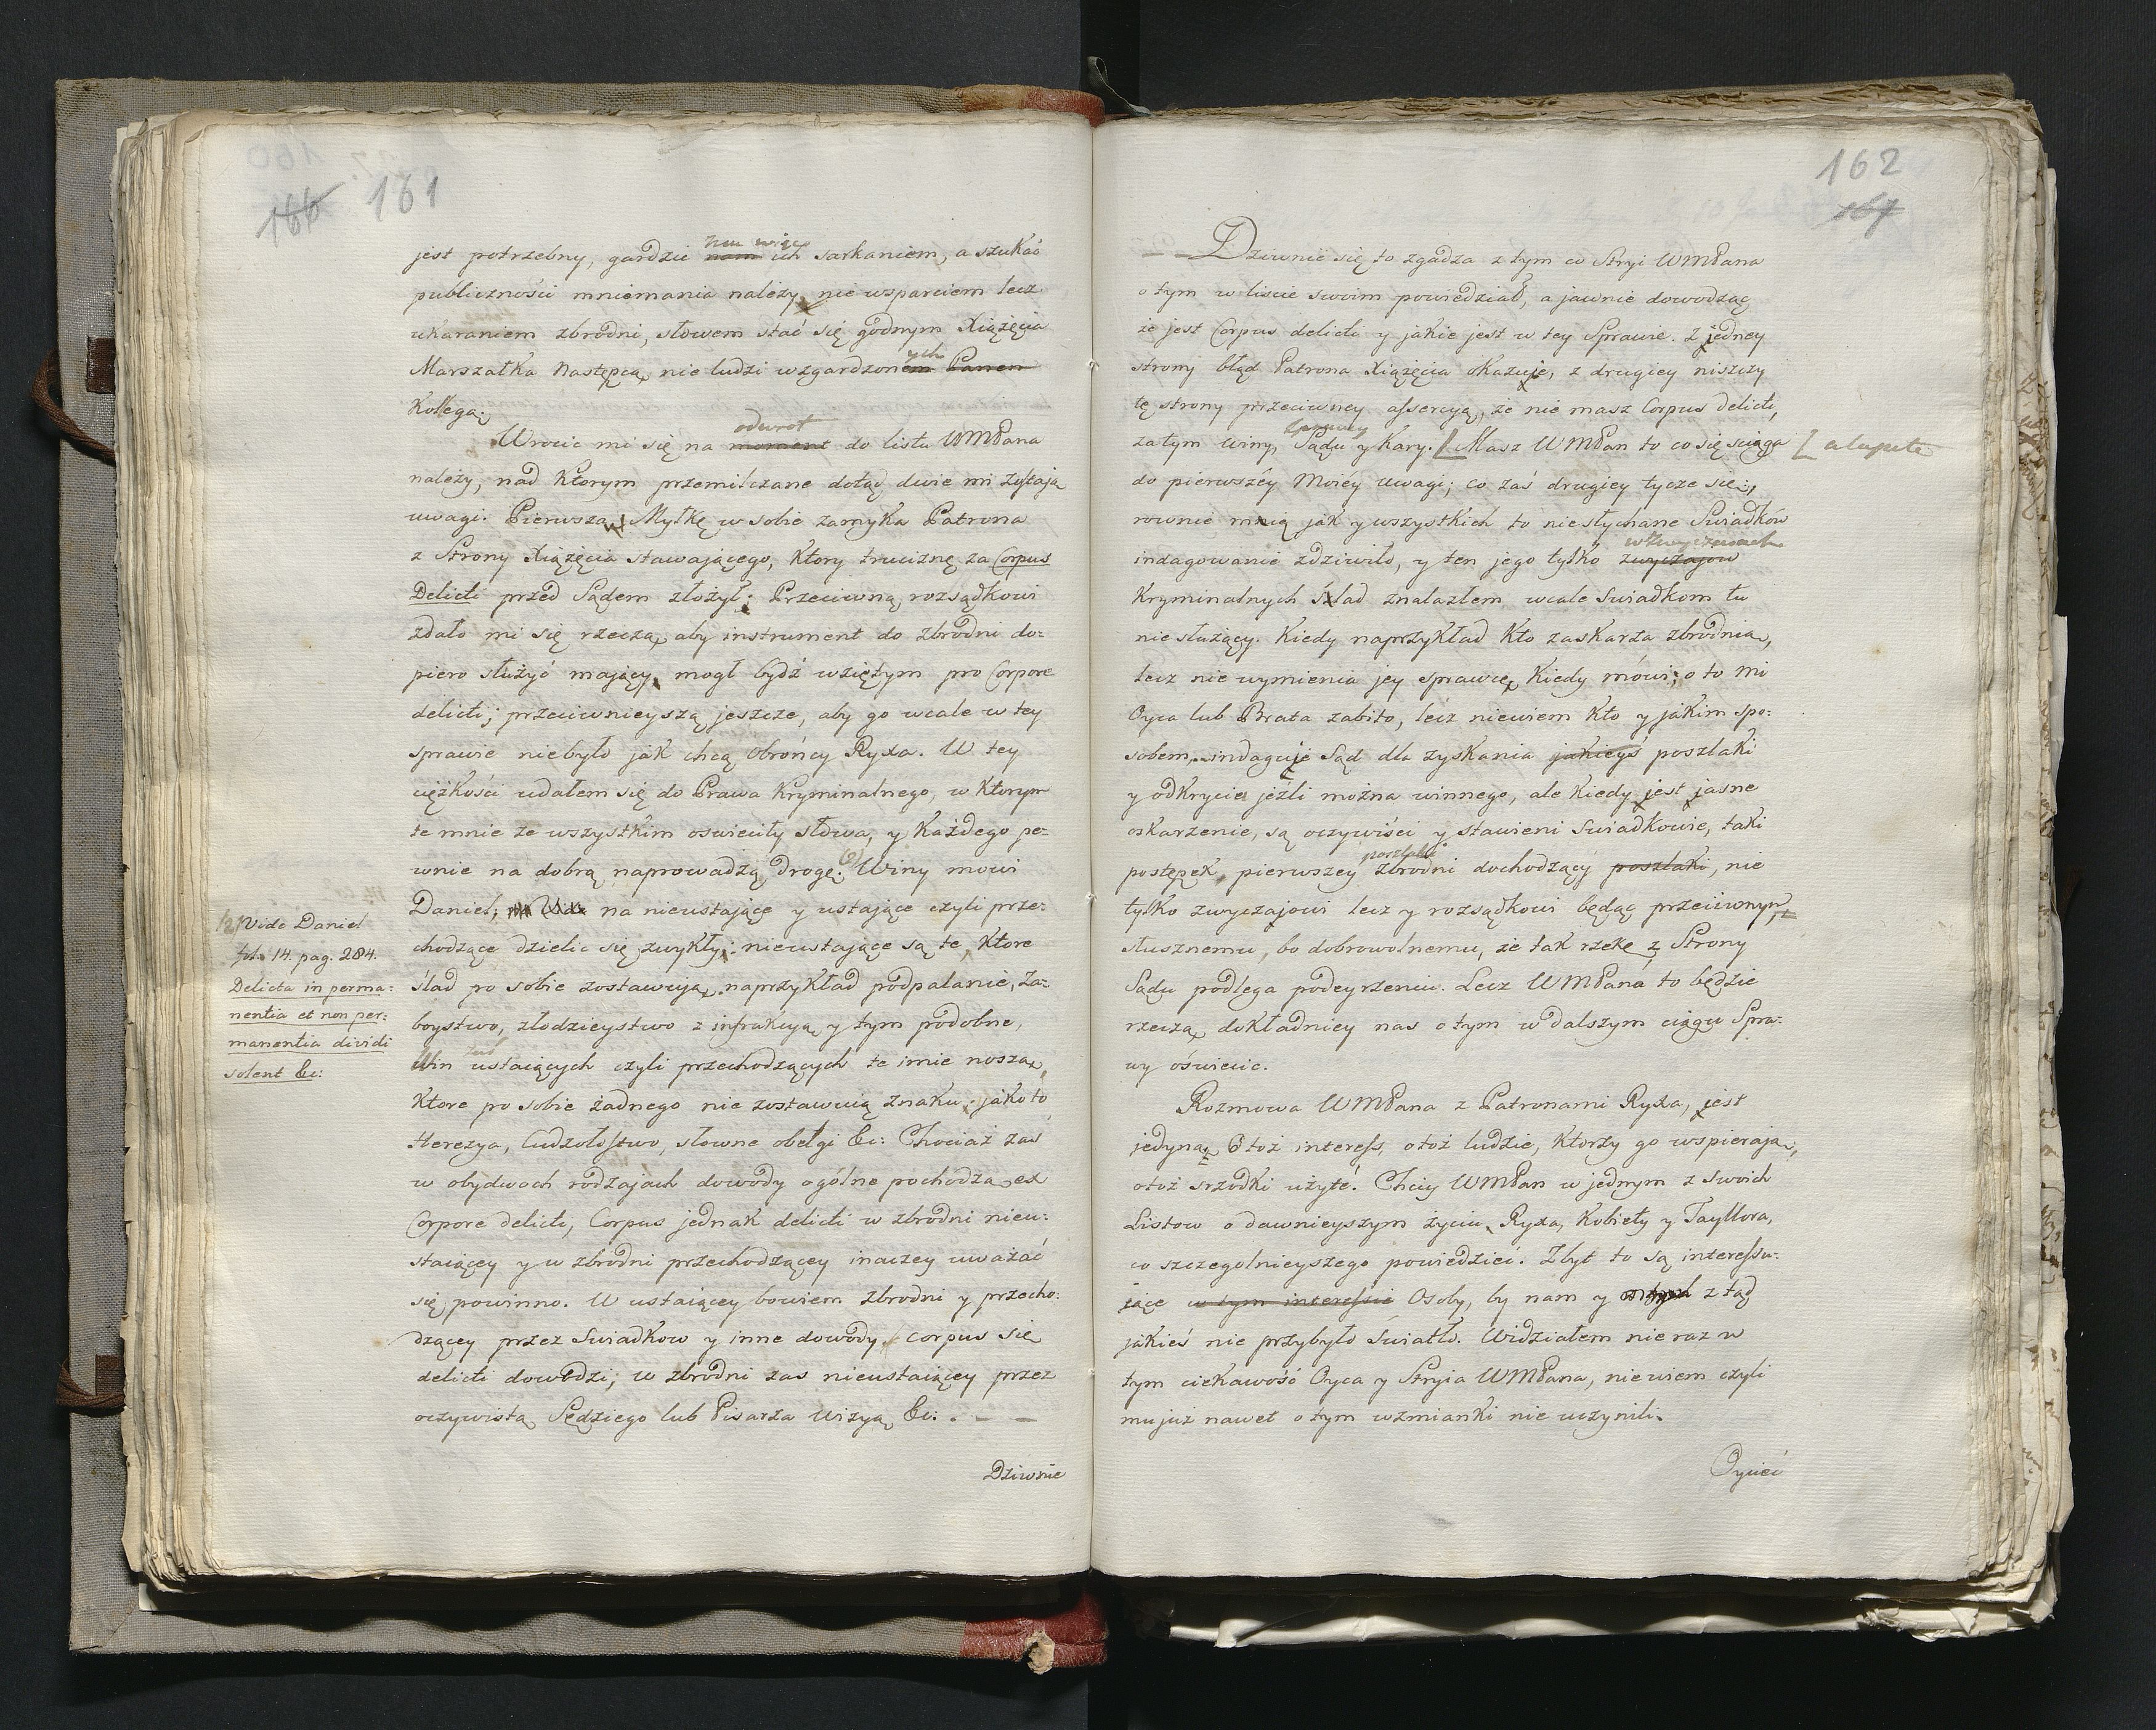 166 161
jest potrzebny, gardzić nam mu więc ich sarkaniem, a szukać
publiczności mniemania należy, nie wsparciem lecz
ukaraniem zbrodni, słowem stać się godnym Xiążęcia
Marszałka Następcą, nie ludzi wzgardzonych Panem
Kollegą.
Wrocic mi się na moment odwrot do listu WMPana
należy, nad ktorym przemilczane dotąd dwie mi zostają
uwagi. Pierwsza, Myłkę w sobie zamyka Patrona
z Strony Xiążęcia stawającego, ktory truciznę za Corpus
Delicti przed Sądem złożył; Przeciwną rozsądkowi
zdało mi się rzeczą, aby instrument do zbrodni do=
piero służyć mający, mogł bydź wziętym pro Corpore
delicti; przeciwnieyszą jeszcze, aby go wcale w tey
sprawie niebyło jak chcą Obrońcy Ryxa. W tey
ciężkości udałem się do Prawa Kryminalnego, w ktorym
te mnie ze wszystkim oswieciły słowa, y każdego pe=
wnie na dobrą naprowadzą drogę. (2) Winy mowi
Daniel, na nieustające y ustające czyli prze=
chodzące dzielic się zwykły: nieustające są te, ktore
ślad po sobie zostawują, naprzykład podpalanie, Za=
boystwo, złodzieystwo z infrakcyą y tym podobne,
Win zaś ustaiących czyli przechodzących te imie noszą,
ktore po sobie żadnego nie zostawuią znaku, jako to
Herezya, Cudzołostwo, słowne obelgi &c: Chociaż zas
w obydwoch rodzajach dowody ogólne pochodzą ex
Corpore delicti, Corpus jednak delicti w zbrodni nieu=
staiącey y w zbrodni przechodzącey inaczey uważać
się powinno. W ustaiącey bowiem zbrodni y przecho=
dzącey przez Swiadkow y inne dowody, corpus się
delicti dowodzi; w zbrodni zas nieustaiącey przez
oczywistą Sędziego lub Pisarza wizyą &c: . — —
Dziwnie
(2) Vide Daniel
fol: 14. pag. 284.
Delicta in perma=
nentia et non per=
manentia dividi
solent &c:
162
167
Dziwnie się to zgadza z tym co Stryi WMPana
o tym w liscie swoim powiedział, a jawnie dowodząc
że jest Corpus delicti y jakie jest w tey Sprawie. Z jedney
strony błąd Patrona Xiążęcia okazuje, z drugiey niszczy
tę strony przeciwney assercyą, że nie masz Corpus delicti,
zatym winy, Sprawy Sądu y Kary. [Masz WMPan to co się sciąga [ a capite
do pierwszéy Moiéy uwagi; co zaś drugiey tycze się,
rownie mnie jak y wszystkich to niesłychane Swiadków
indagowanie zdziwiło, y ten jego tylko zwyczajow w zwyczaiach
Kryminalnych ślad znalazłem wcale Swiadkom tu
nie służący. Kiedy naprzykład kto zaskarża zbrodnią,
lecz nie wymienia jey sprawcę, kiedy mówi; o to mi
Oyca lub Brata zabito, lecz niewiem kto y jakim spo=
sobem, indaguje Sąd dla zyskania jakieyś poszlaki
y odkrycia jeźli można winnego, ale kiedy jest jasne
oskarzenie, są oczywiści y stawieni Swiadkowie, taki
postępek, pierwszey poszlaki zbrodni dochodzący poszlaki, nie
tylko zwyczajowi lecz y rozsądkowi będąc przeciwnym,
słusznemu, bo dobrowolnemu, że tak rzekę z Strony
Sądu podlega podeyrzeniu. Lecz WMPana to będzie
rzeczą, dokładniey nas o tym w dalszym ciągu Spra=
wy oświecic.
Rozmowa WMPana z Patronami Ryxa, jest
jedyną, Otoż interess, otoż ludzie, ktorzy go wspierają,
otoż srzodki użyte. Chciy WMPan w jednym z swoich
Listow o dawnieyszym życiu, Ryxa, Kobiety y Tayllora,
co szczegolnieyszego powiedzieć. Zbyt to są interessu=
jące w tym interessie Osoby, by nam y z tąd
jakieś nie przybyło światło. Widziałem nie raz w
tym ciekawość Oyca y Stryia WMPana, niewiem czyli
mu już nawet o tym wzmianki nie uczynili.
Oyciec